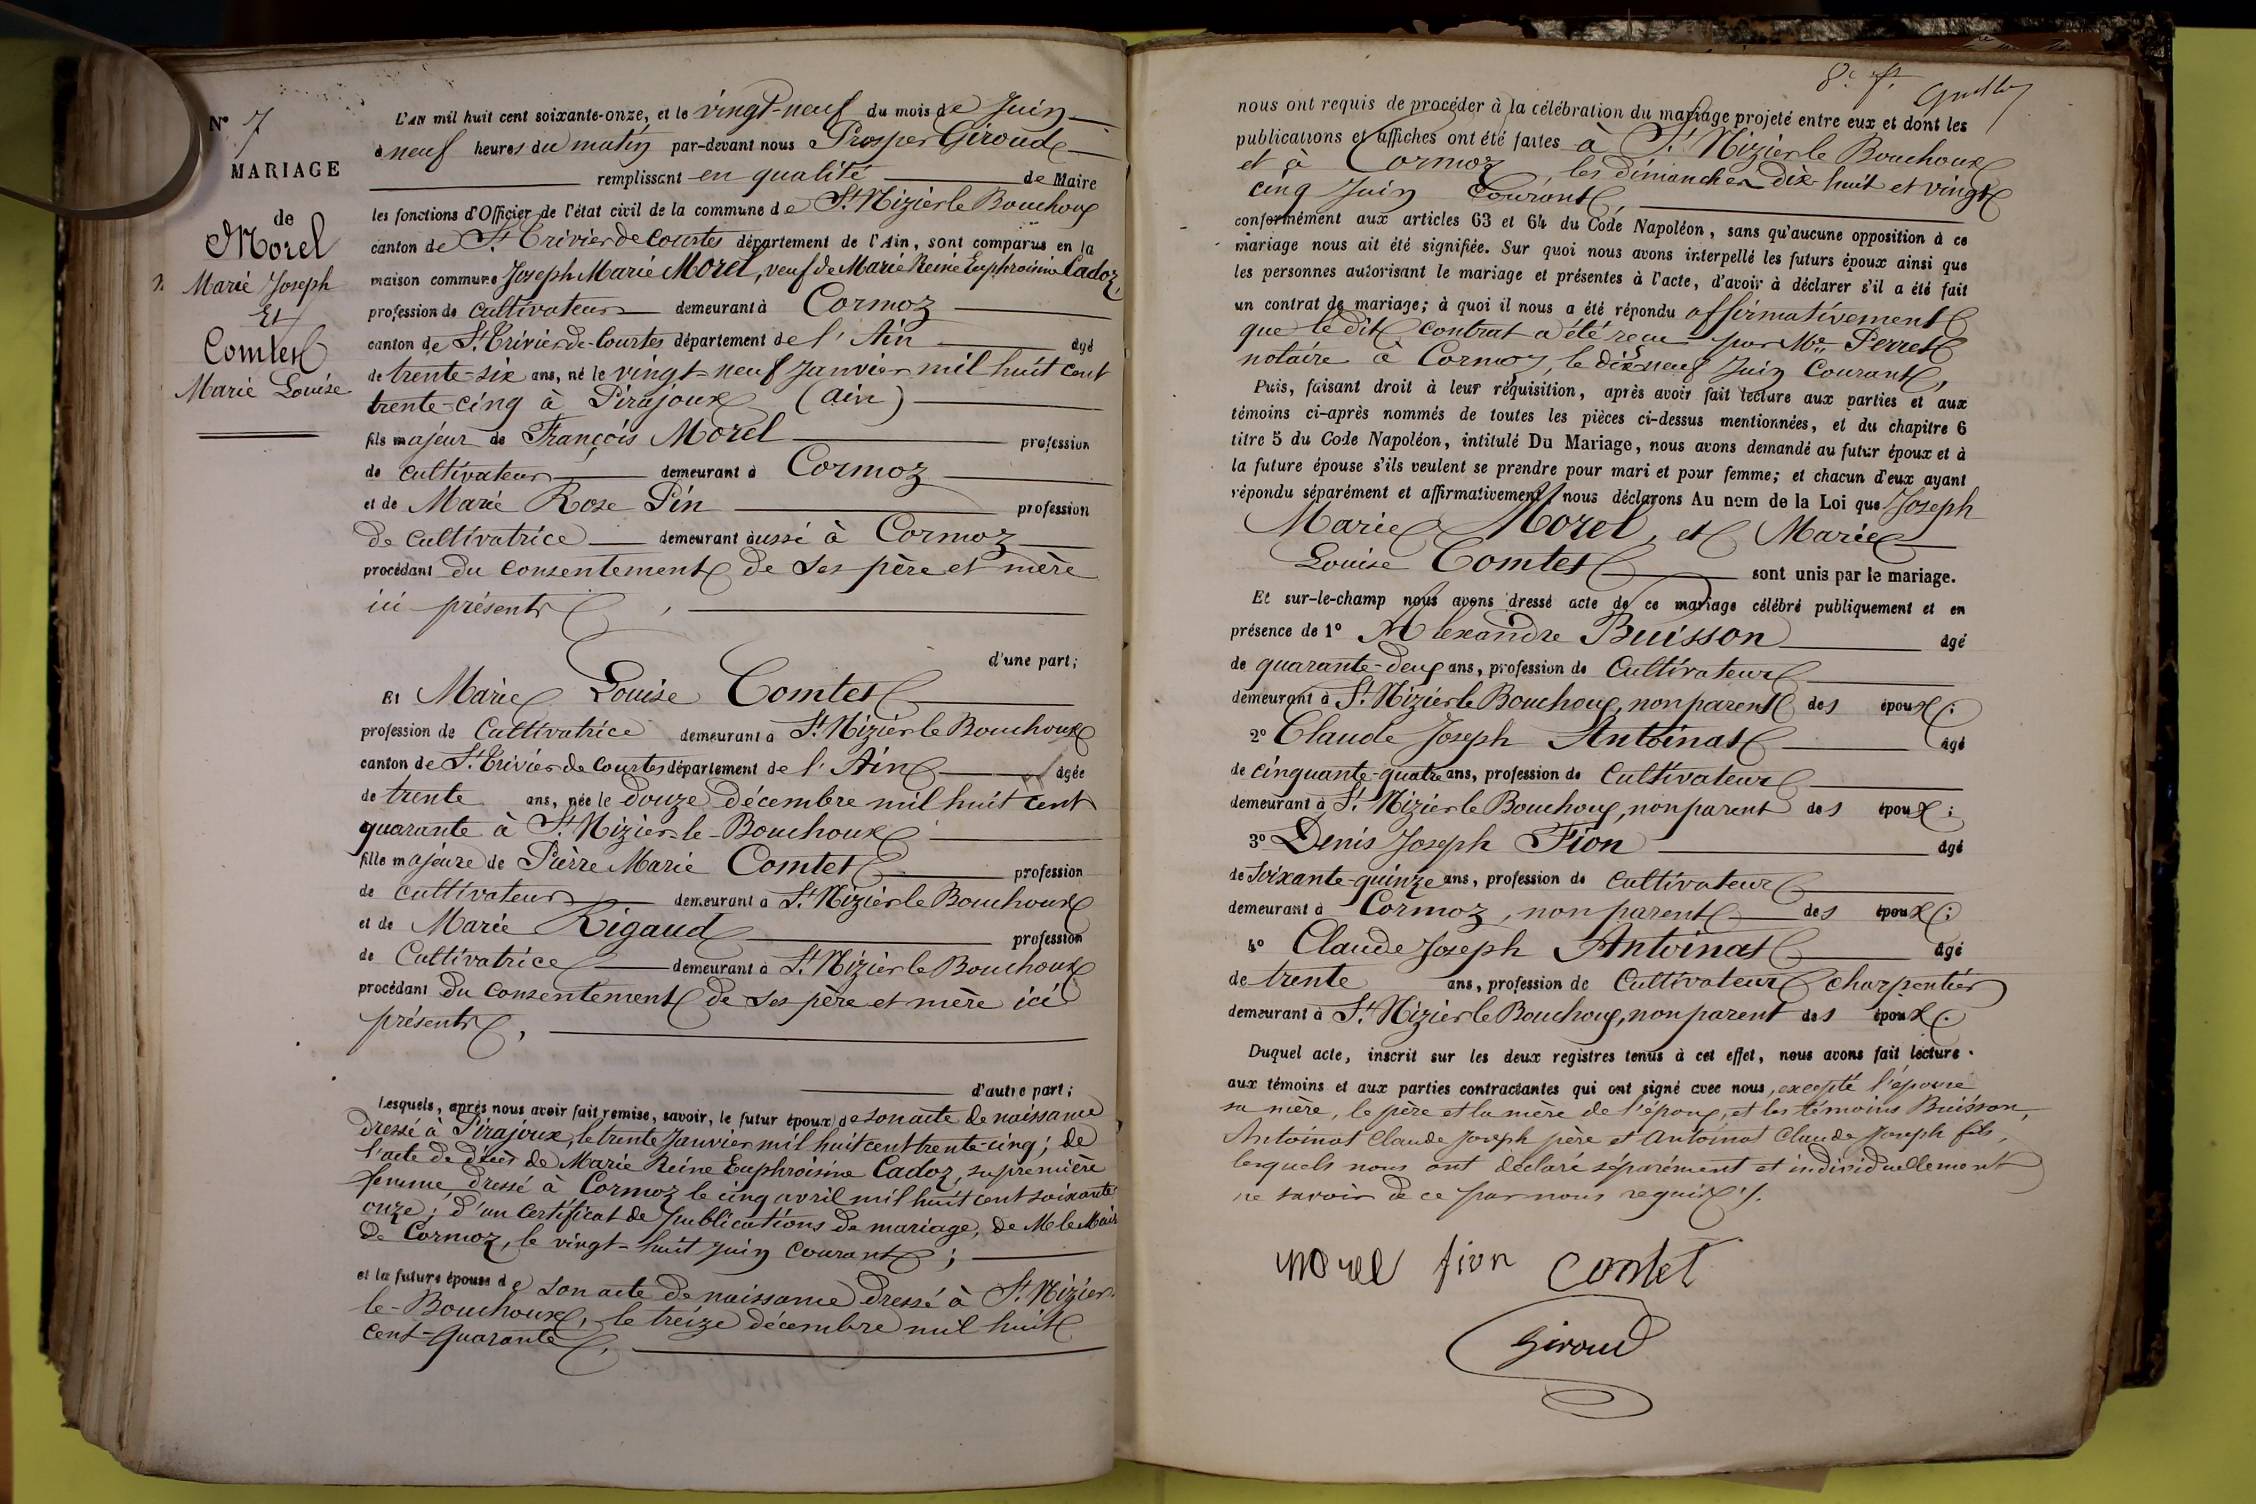 N° 7
MARIAGE
de
Morel
Marie Joseph
Et
Comtet
Marie Louise
L'AN mil huit cent soixante-onze, et le vingt-neuf du mois de Juin
à neuf heures du matin par-devant nous Prosper Giroud
remplissant en qualité de Maire
les fonctions d'Officier de l'état civil de la commune de St Nizier le Bouchoux
canton de St Trivier de Courtes département de l'Ain, sont comparus en la
maison commune Joseph Marie Morel, veuf de Marie Reine Euphroisine Cadoz,
profession de cultivateur demeurant à Cormoz
canton de St Trivier-de-Courtes département de l'Ain âgé
de trente-six ans, né le vingt-neuf Janvier mil huit cent
trente-cinq à Pirajoux (ain)
fils majeur de François Morel profession
de cultivateur demeurant à Cormoz
et de Marie Rose Pin profession
de cultivatrice demeurant aussi à Cormoz
procédant du consentement de ses père et mère
ici présents,
d'une part;
Et Marie Louise Comtet
profession de Cultivatrice demeurant à St Nizier le Bouchoux
canton de St Trivier de Courtes département de l'Ain âgée
de trente ans, née le douze décembre mil huit cent
quarante à St Nizier-le-Bouchoux
fille majeure de Pierre Marie Comtet profession
de cultivateur demeurant à St Nizier le Bouchoux
et de Marie Rigaud profession
de Cultivatrice demeurant à St Nizier le Bouchoux
procédant du consentement de ses père et mère ici
présents,
d'autre part;
Lesquels, après nous avoir fait remise, savoir, le futur époux de son acte de naissance
dressé à Pirajoux, le trente Janvier mil huit cent trente-cinq; de
l'acte de décès de Marie Reine Euphroisine Cadoz, sa première
femme dressé à Cormoz le cinq avril mil huit cent soixante
onze; d'un certificat de publications de mariage, de M le Maire
de Cormoz, le vingt-huit juin courant;
et la future épouse de son acte de naissance dressé à St Nizier-
le-Bouchoux, le treize décembre mil huit
cent-quarante,
nous ont requis de procéder à la célébration du mariage projeté entre eux et dont les
publications et affiches ont été faites à St Nizier le Bouchoux
et à Cormoz, les dimanches dix-huit et vingt
cinq Juin Courant,
conformément aux articles 63 et 64 du Code Napoléon, sans qu'aucune opposition à ce
mariage nous ait été signifiée. Sur quoi nous avons interpellé les futurs époux ainsi que
les personnes autorisant le mariage et présentes à l'acte, d'avoir à déclarer s'il a été fait
un contrat de mariage; à quoi il nous a été répondu affirmativement
que le dit contrat a été reçu par Me Perret
notaire à Cormoz, le dix neuf Juin Courant,
Puis, faisant droit à leur réquisition, après avoir fait lecture aux parties et aux
témoins ci-après nommés de toutes les pièces ci-dessus mentionnées, et du chapitre 6
titre 5 du Code Napoléon, intitulé Du Mariage, nous avons demandé au futur époux et à
la future épouse s'ils veulent se prendre pour mari et pour femme; et chacun d'eux ayant
répondu séparément et affirmativement, nous déclarons Au nom de la Loi que Joseph
Marie Morel, et Marie
Louise Comtet sont unis par le mariage.
Et sur-le-champ nous avons dressé acte de ce mariage célébré publiquement et en
présence de 1° Alexandre Buisson âgé
de quarante-deux ans, profession de Cultivateur
demeurant à St Nizier le Bouchoux, non parent des époux;
2° Claude Joseph Antoinat âgé
de cinquante-quatre ans, profession de Cultivateur
demeurant à St Nizier le Bouchoux, non parent des époux;
3° Denis Joseph Fion âgé
de Soixante-quinze ans, profession de Cultivateur
demeurant à Cormoz, non parent des époux;
4° Claude Joseph Antoinat âgé
de trente ans, profession de Cultivateur charpentier
demeurant à St Nizier le Bouchoux, non parent des époux.
Duquel acte, inscrit sur les deux registres tenus à cet effet, nous avons fait lecture
aux témoins et aux parties contractantes qui ont signé avec nous, excepté l'épouse
sa mère, le père et la mère de l'époux, et les témoins Buisson,
Antoinat Claude Joseph père et Antoinat Claude Joseph fils,
lesquels nous ont déclaré séparément et individuellement
ne savoir de ce par nous requis.
morel fion Comtet
Giroud